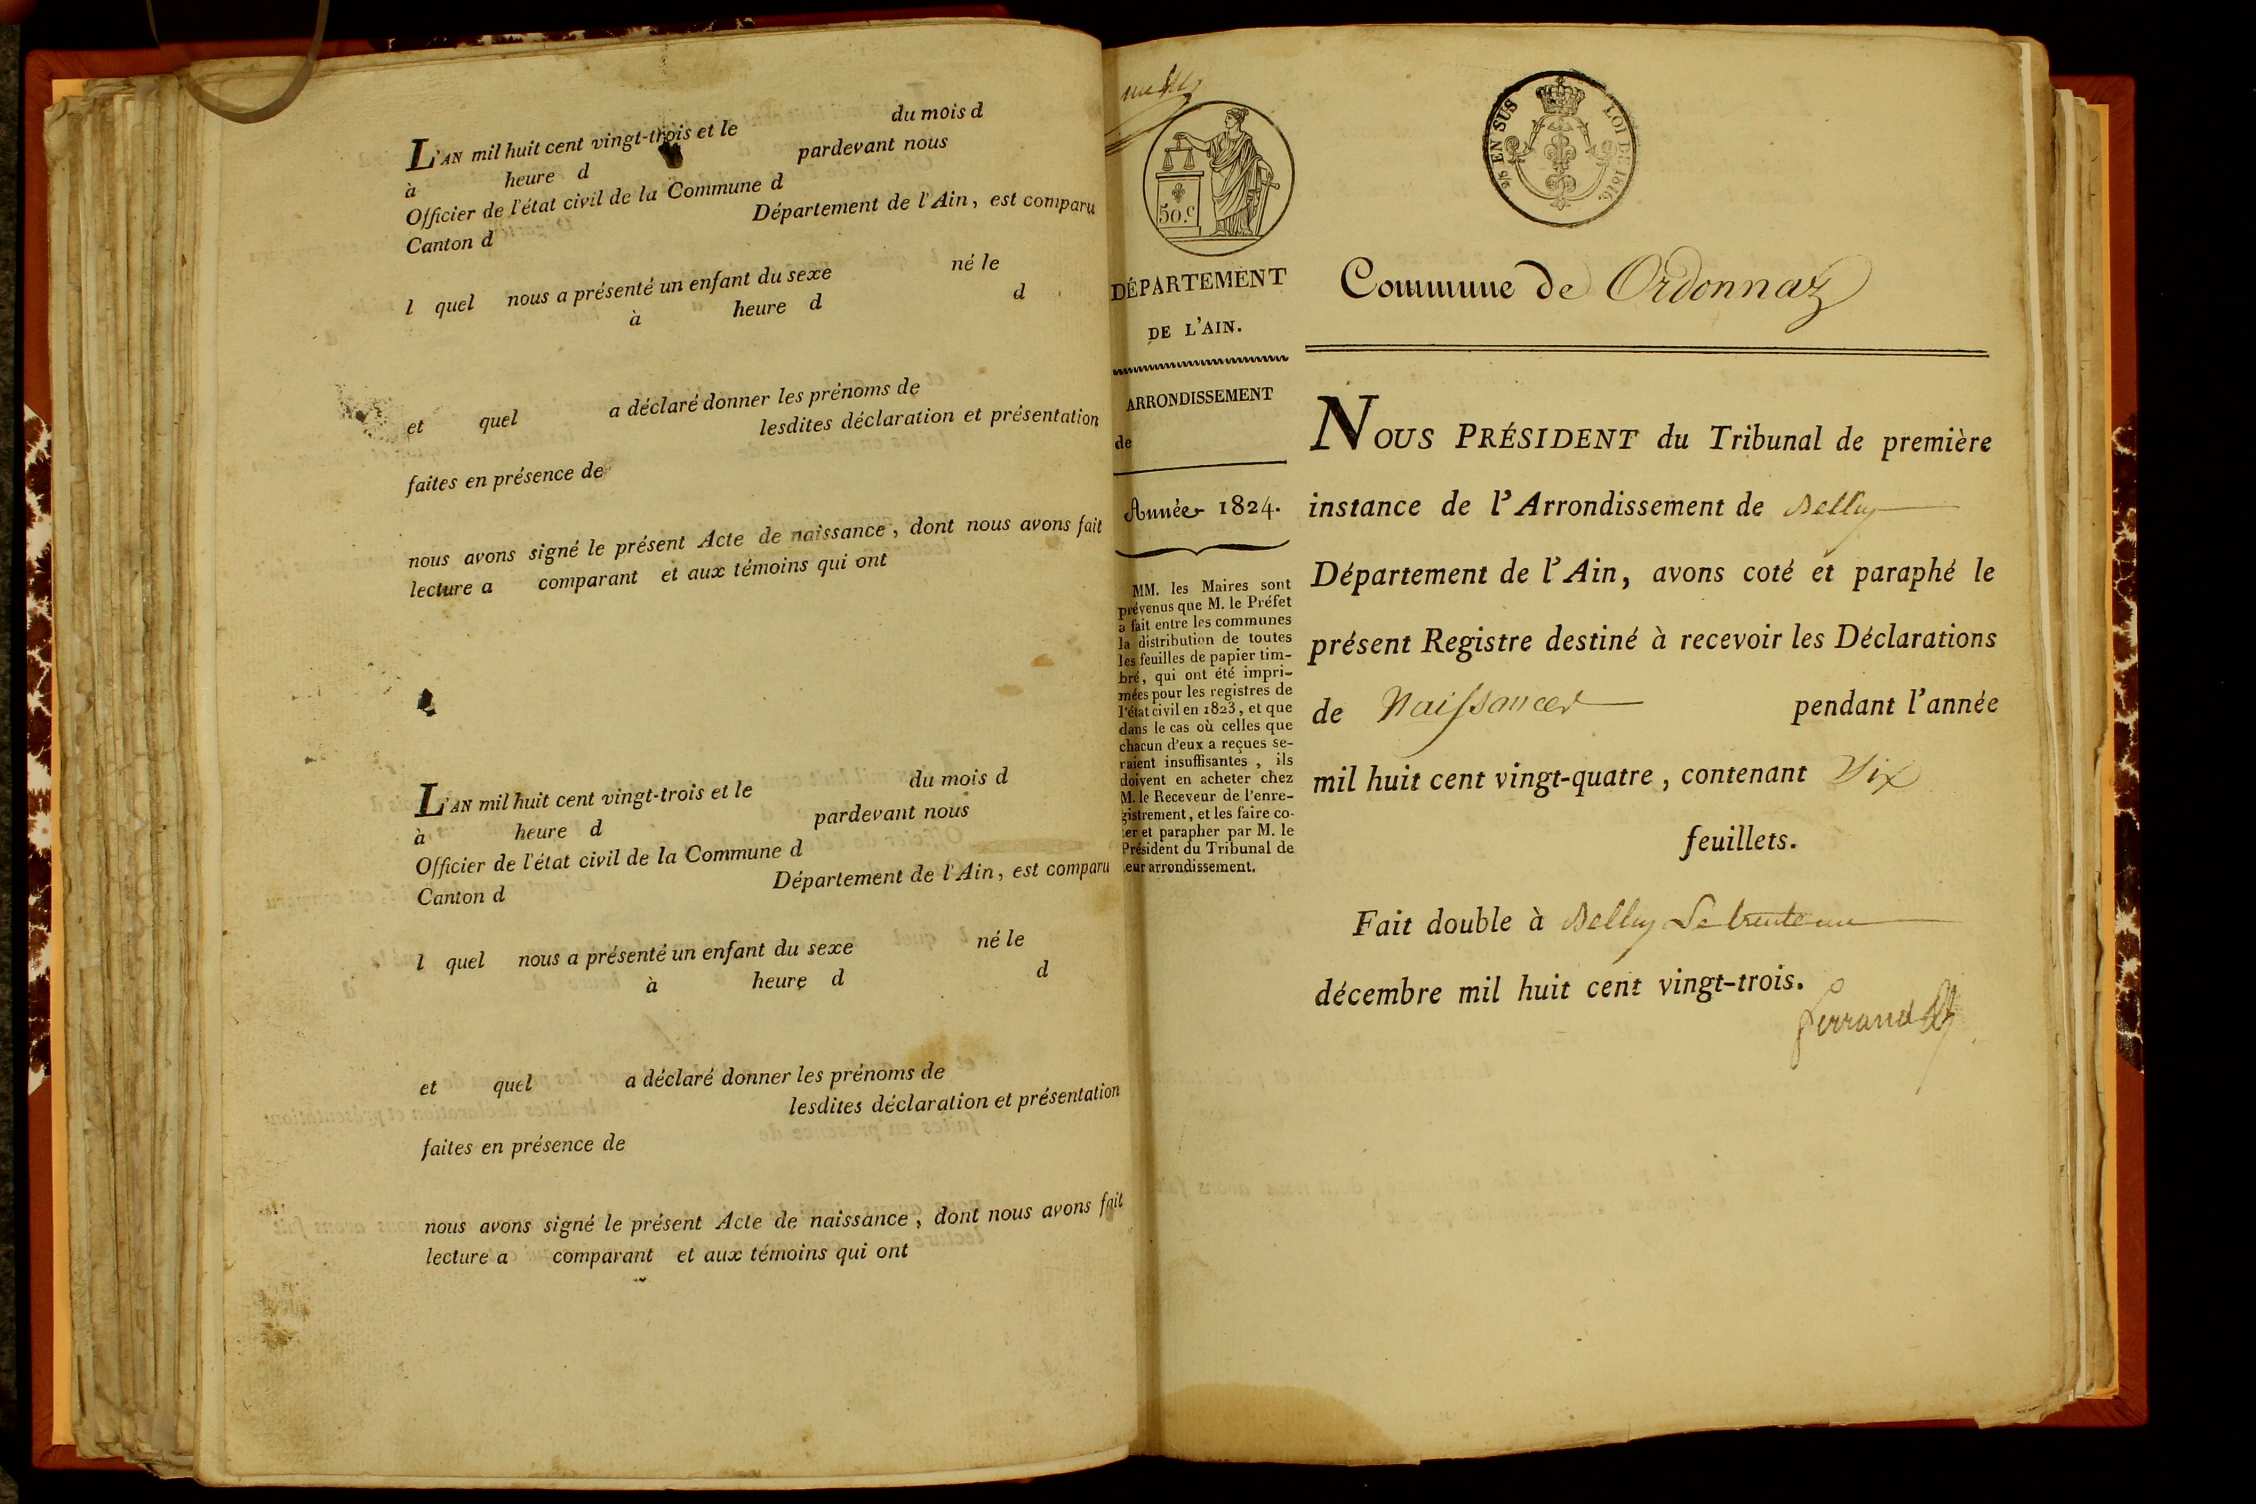 L'AN mil huit cent vingt-trois et le du mois d
à heure d pardevant nous
Officier de l'état civil de la Commune d
Canton d Département de l'Ain, est comparu
l quel nous a présenté un enfant du sexe né le
à heure d d
et quel a déclaré donner les prénoms de
lesdites déclaration et présentation
faites en présence de
nous avons signé le présent Acte de naissance, dont nous avons fait
lecture a comparant et aux témoins qui ont
L'AN mil huit cent vingt-trois et le du mois d
à heure d pardevant nous
Officier de l'état civil de la Commune d
Canton d Département de l'Ain, est comparu
l quel nous a présenté un enfant du sexe né le
à heure d d
et quel a déclaré donner les prénoms de
lesdites déclaration et présentation
faites en présence de
nous avons signé le présent Acte de naissance, dont nous avons fait
lecture a comparant et aux témoins qui ont
50.c
DÉPARTEMENT
DE L'AIN.
ARRONDISSEMENT
de
Année 1824.
MM. les Maires sont
prévenus que M. le Préfet
a fait entre les communes
la distribution de toutes
les feuilles de papier tim-
bré, qui ont été impri-
mées pour les registres de
l'état civil en 1823, et que
dans le cas où celles que
chacun d'eux a reçues se-
raient insuffisantes, ils
doivent en acheter chez
M. le Receveur de l'enre-
gistrement, et les faire co-
ter et parapher par M. le
Président du Tribunal de
leur arrondissement.
EN SUS LOI DE 1816.
Commune de Ordonnaz
NOUS PRÉSIDENT du Tribunal de première
instance de l'Arrondissement de Belley
Département de l'Ain, avons coté et paraphé le
présent Registre destiné à recevoir les Déclarations
de Naissances pendant l'année
mil huit cent vingt-quatre, contenant Six
feuillets.
Fait double à Belley Le trente un
décembre mil huit cent vingt-trois.
ferrand